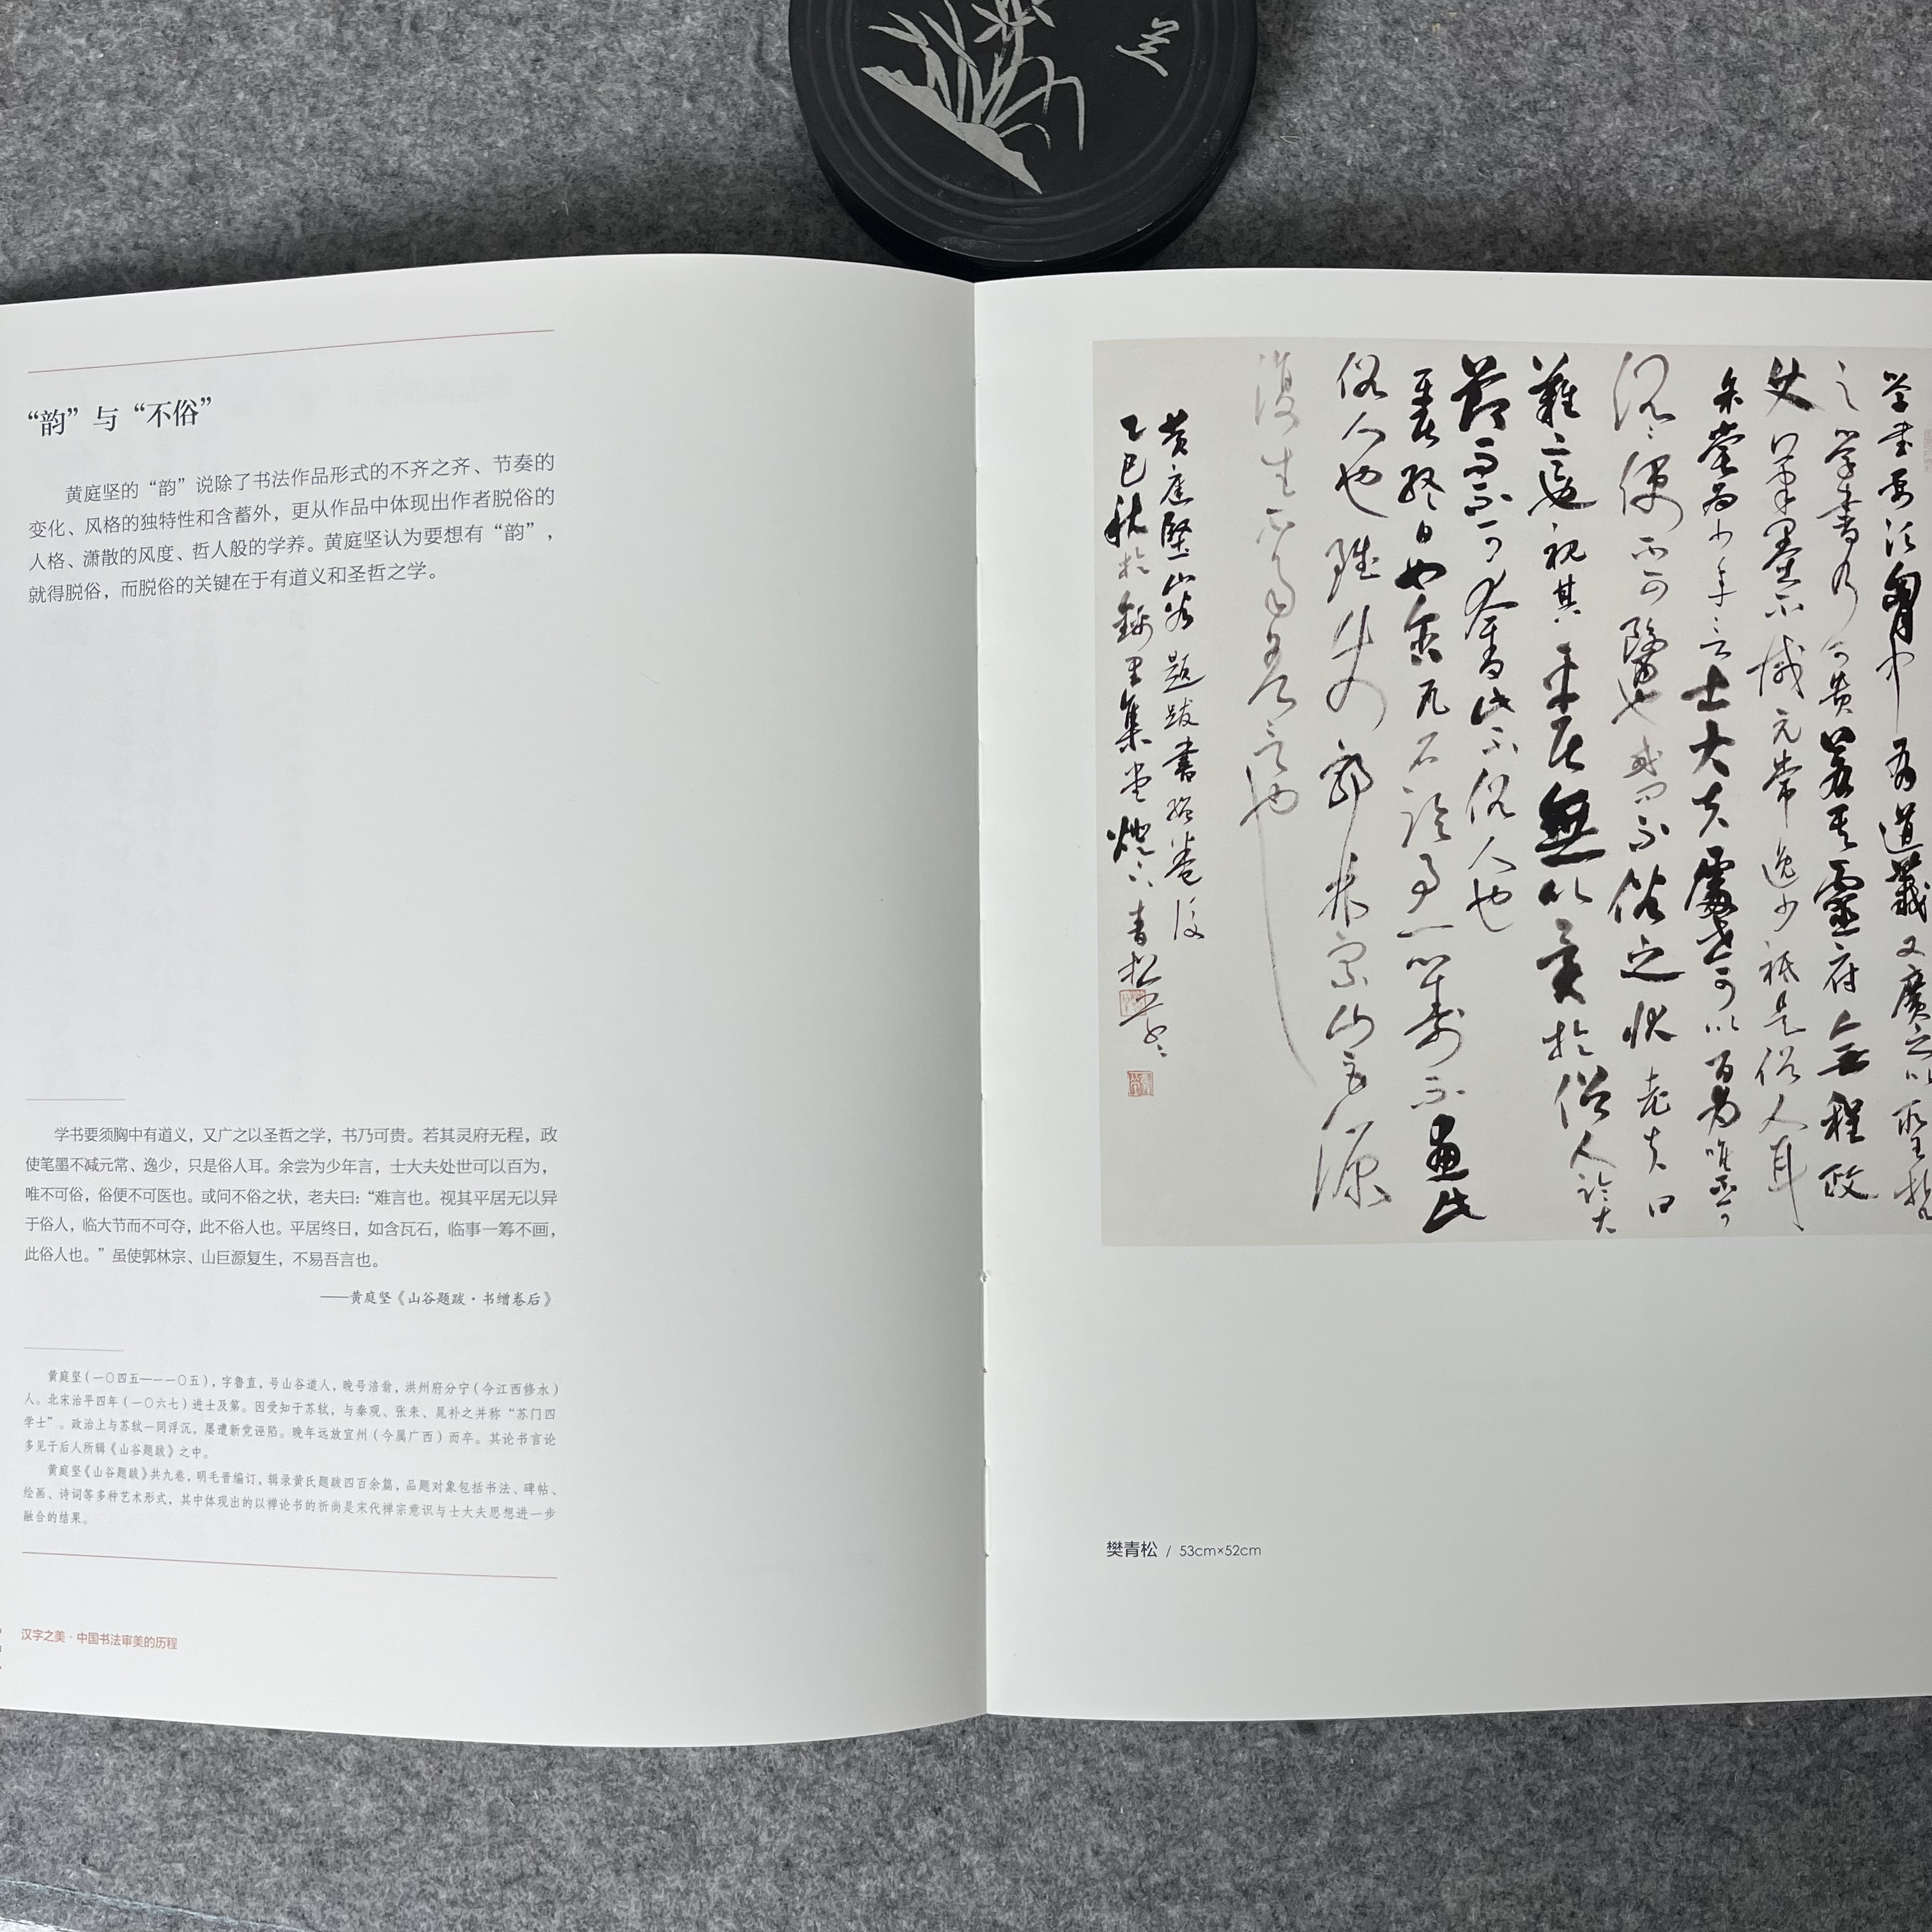 兰
“韵”与“不俗”
黄庭坚的“韵”说除了书法作品形式的不齐之齐、节奏的
变化、风格的独特性和含蓄外，更从作品中体现出作者脱俗的
人格、潇散的风度、哲人般的学养。黄庭坚认为要想有“韵”，
就得脱俗，而脱俗的关键在于有道义和圣哲之学。
学书要须胸中有道义，又广之以圣哲之学，书乃可贵。若其灵府无程，政
使笔墨不减元常、逸少，只是俗人耳。余尝为少年言，士大夫处世可以百为，
唯不可俗，俗便不可医也。或问不俗之状，老夫曰：“难言也。视其平居无以异
于俗人，临大节而不可夺，此不俗人也。平居终日，如含瓦石，临事一筹不画，
此俗人也。”虽使郭林宗、山巨源复生，不易吾言也。
——黄庭坚《山谷题跋·书缯卷后》
黄庭坚（一〇四五—一一〇五），字鲁直，号山谷道人，晚号涪翁，洪州府分宁（今江西修水）
人。北宋治平四年（一〇六七）进士及第。因受知于苏轼，与秦观、张耒、晁补之并称“苏门四
学士”。政治上与苏轼一同浮沉，屡遭新党诬陷。晚年远放宜州（今属广西）而卒。其论书言论
多见于后人所辑《山谷题跋》之中。
黄庭坚《山谷题跋》共九卷，明毛晋编订，辑录黄氏题跋四百余篇，品题对象包括书法、碑帖、
绘画、诗词等多种艺术形式，其中体现出的以禅论书的祈尚是宋代禅宗意识与士大夫思想进一步
融合的结果。
汉字之美·中国书法审美的历程
学書要须胸中有道義又廣之以聖哲
之学書乃可貴若其靈府無程政
使筆墨不减元常逸少祗是俗人耳
余嘗為少年言士大夫處世可以百為唯不可
俗俗便不可醫也或問不俗之狀老夫曰
難言也視其平居無以異於俗人臨大
節而不可奪此不俗人也
平居終日如含瓦石臨事一籌不畫此
俗人也雖使郭林宗山巨源
復生不易吾言也
黄庭堅山谷題跋書繒卷後
乙巳秋於錦里集堂燈下青松
樊青松 / 53cm×52cm